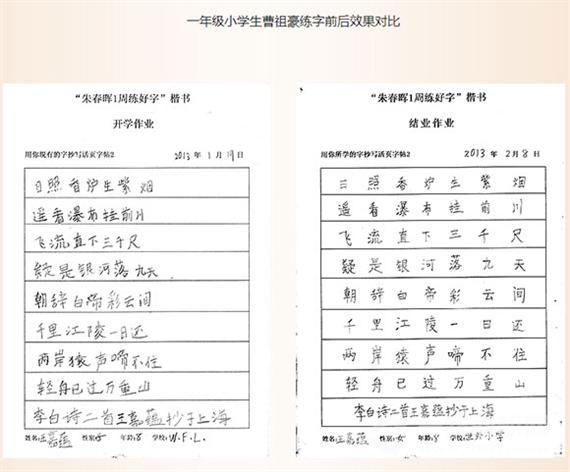 一年级小学生曹祖豪练字前后效果对比
“朱春晖1周练好字”楷书
开学作业
用你现有的字抄写活页字帖2 2013年1月19日
日照香炉生紫烟
遥看瀑布挂前川
飞流直下三千尺
疑是银河落九天
朝辞白啼彩云间
千里江陵一日还
两岸猿声啼不住
轻舟已过万重山
李白诗二首王嘉蕴抄于上海
姓名:王嘉蕴 性别:女 年龄:8 学校:W.F.L.
“朱春晖1周练好字”楷书
结业作业
用你所学的字抄写活页字帖2 2013年2月8日
日照香炉生紫烟
遥看瀑布挂前川
飞流直下三千尺
疑是银河落九天
朝辞白帝彩云间
千里江陵一日还
两岸猿声啼不住
轻舟已过万重山
李白诗二首王嘉蕴抄于上海
姓名:王嘉蕴 性别:女 年龄:8 学校:世外小学